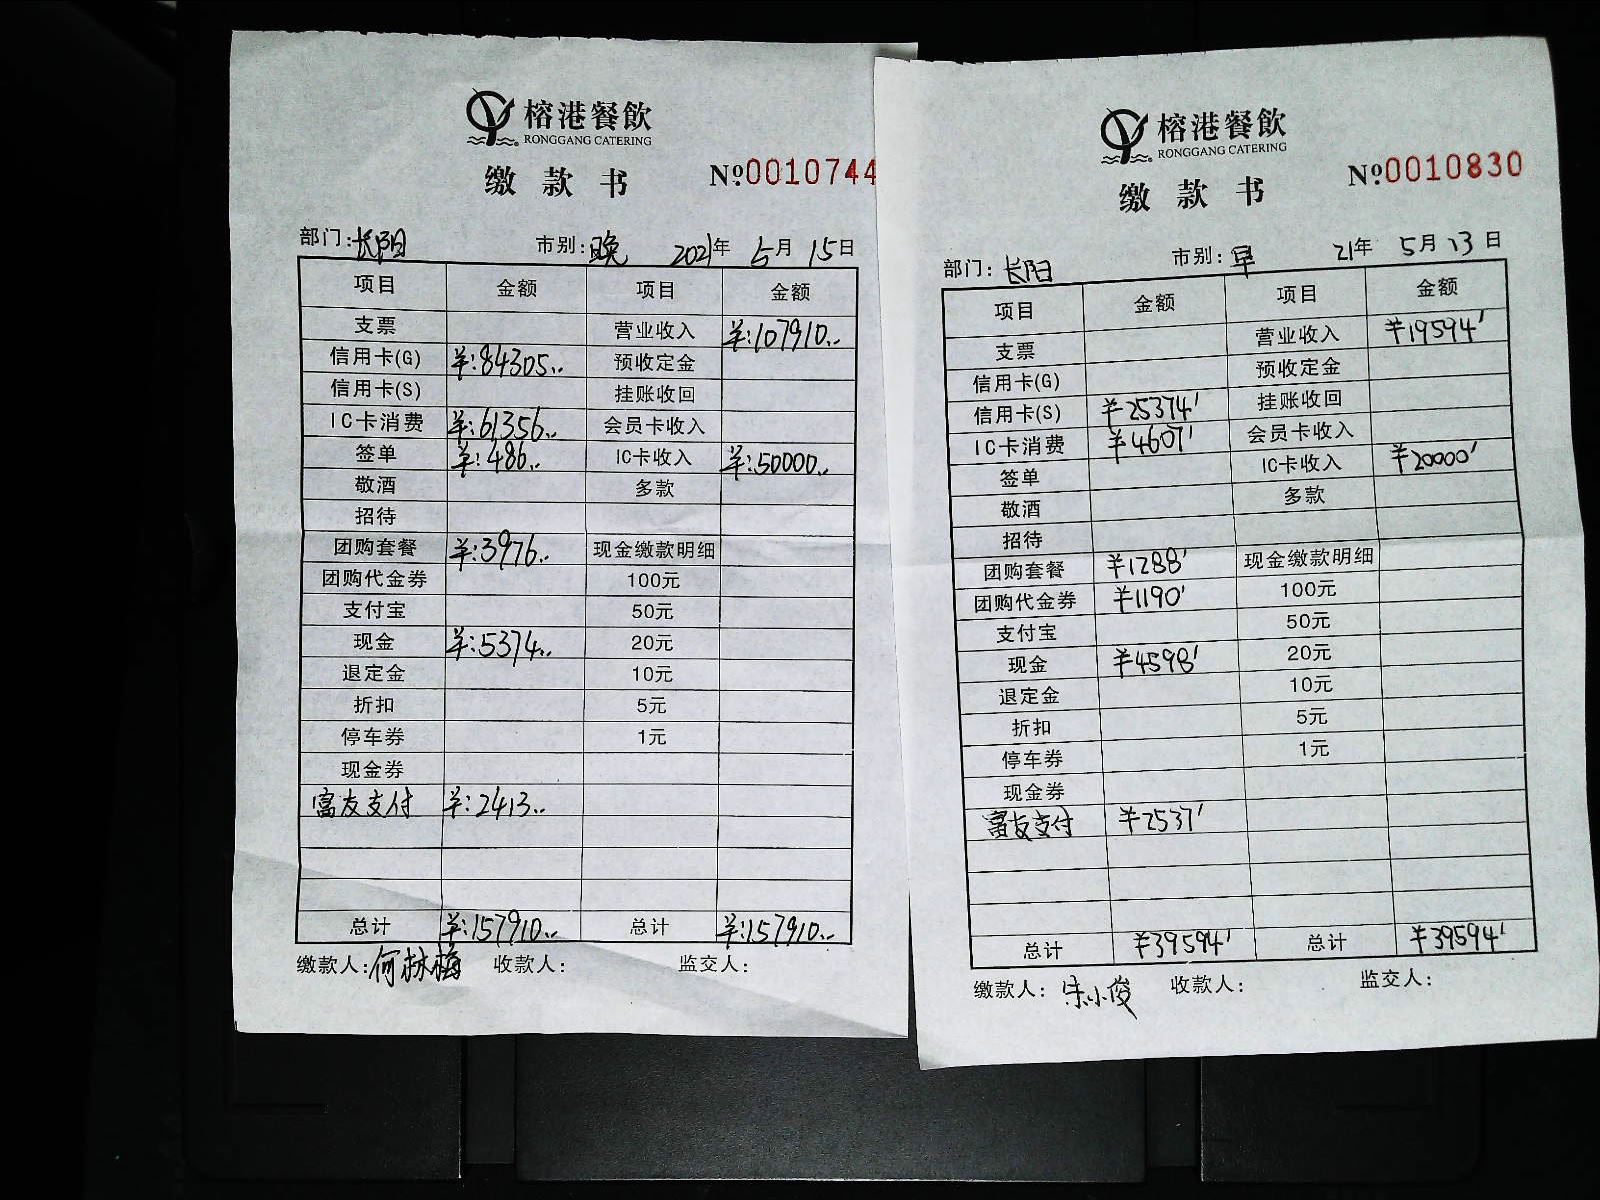 榕港餐飲
RONGGANG CATERING
缴款书 №0010744
部门:长阳 市别:晚 2021年 5月 15日
项目 金额 项目 金额
支票 营业收入 ¥:107910..
信用卡(G) ¥:84305.. 预收定金
信用卡(S) 挂账收回
IC卡消费 ¥:61356.. 会员卡收入
签单 ¥:486.. IC卡收入 ¥:50000..
敬酒 多款
招待
团购套餐 ¥:3976.. 现金缴款明细
团购代金券 100元
支付宝 50元
现金 ¥:5374.. 20元
退定金 10元
折扣 5元
停车券 1元
现金券
富友支付 ¥:2413..
总计 ¥:157910.. 总计 ¥:157910..
缴款人:何林梅 收款人: 监交人:
榕港餐飲
RONGGANG CATERING
缴款书 №0010830
部门:长阳 市别:早 21年 5月 13日
项目 金额 项目 金额
支票 营业收入 ¥19594'
信用卡(G) 预收定金
信用卡(S) ¥25374' 挂账收回
IC卡消费 ¥4607' 会员卡收入
签单 IC卡收入 ¥20000'
敬酒 多款
招待
团购套餐 ¥1288' 现金缴款明细
团购代金券 ¥1190' 100元
支付宝 50元
现金 ¥4598' 20元
退定金 10元
折扣 5元
停车券 1元
现金券
富友支付 ¥2537'
总计 ¥39594' 总计 ¥39594'
缴款人:朱小俊 收款人: 监交人: